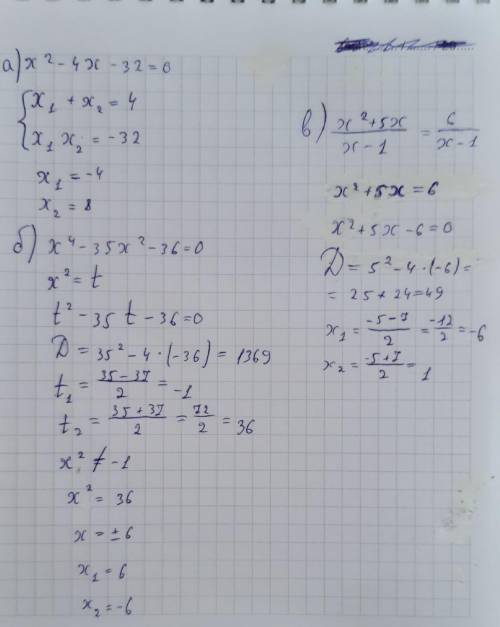 а) x² - 4x - 32 = 0
x₁ + x₂ = 4
x₁ x₂ = -32
x₁ = -4
x₂ = 8
б) x⁴ - 35x² - 36 = 0
x² = t
t² - 35t - 36 = 0
D = 35² - 4·(-36) = 1369
t₁ = (35 - 37)/2 = -1
t₂ = (35 + 37)/2 = 72/2 = 36
x² ≠ -1
x² = 36
x = ±6
x₁ = 6
x₂ = -6
в) (x² + 5x)/(x - 1) = 6/(x - 1)
x² + 5x = 6
x² + 5x - 6 = 0
D = 5² - 4·(-6) =
= 25 + 24 = 49
x₁ = (-5 - 7)/2 = -12/2 = -6
x₂ = (-5 + 7)/2 = 1